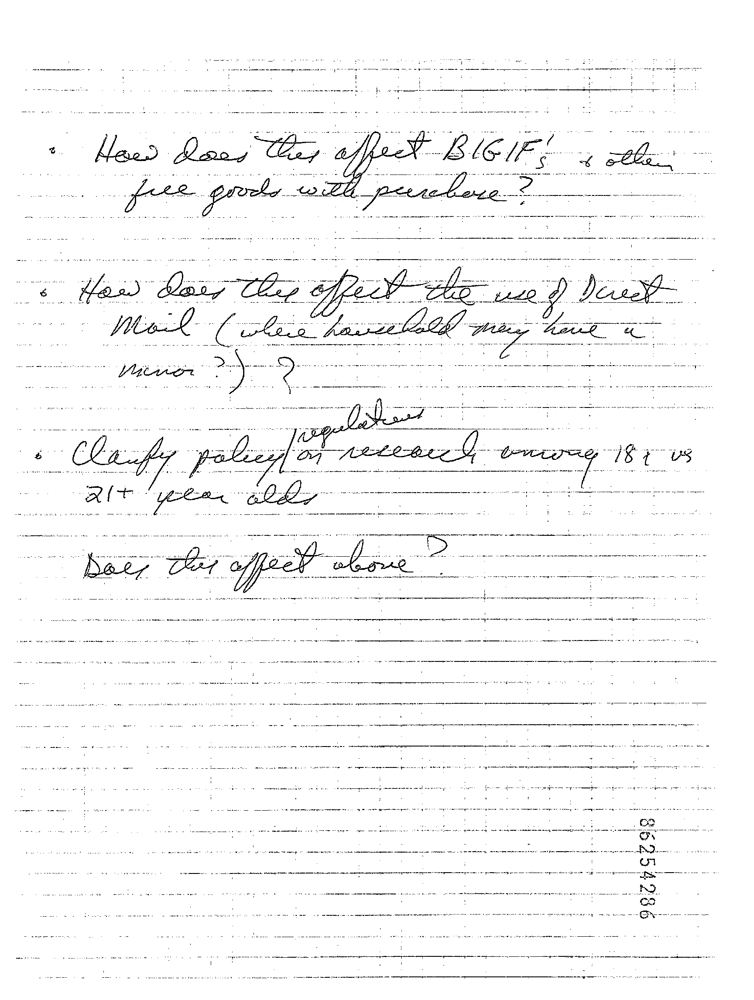 • How does this affect B1G1F's & other
free goods with purchase?
• How does this affect the use of Direct
Mail (where household may have a
minor?) ?
regulations
• Clarify policy/on research among 18+ vs
21+ year olds
Does this affect above?
86254286